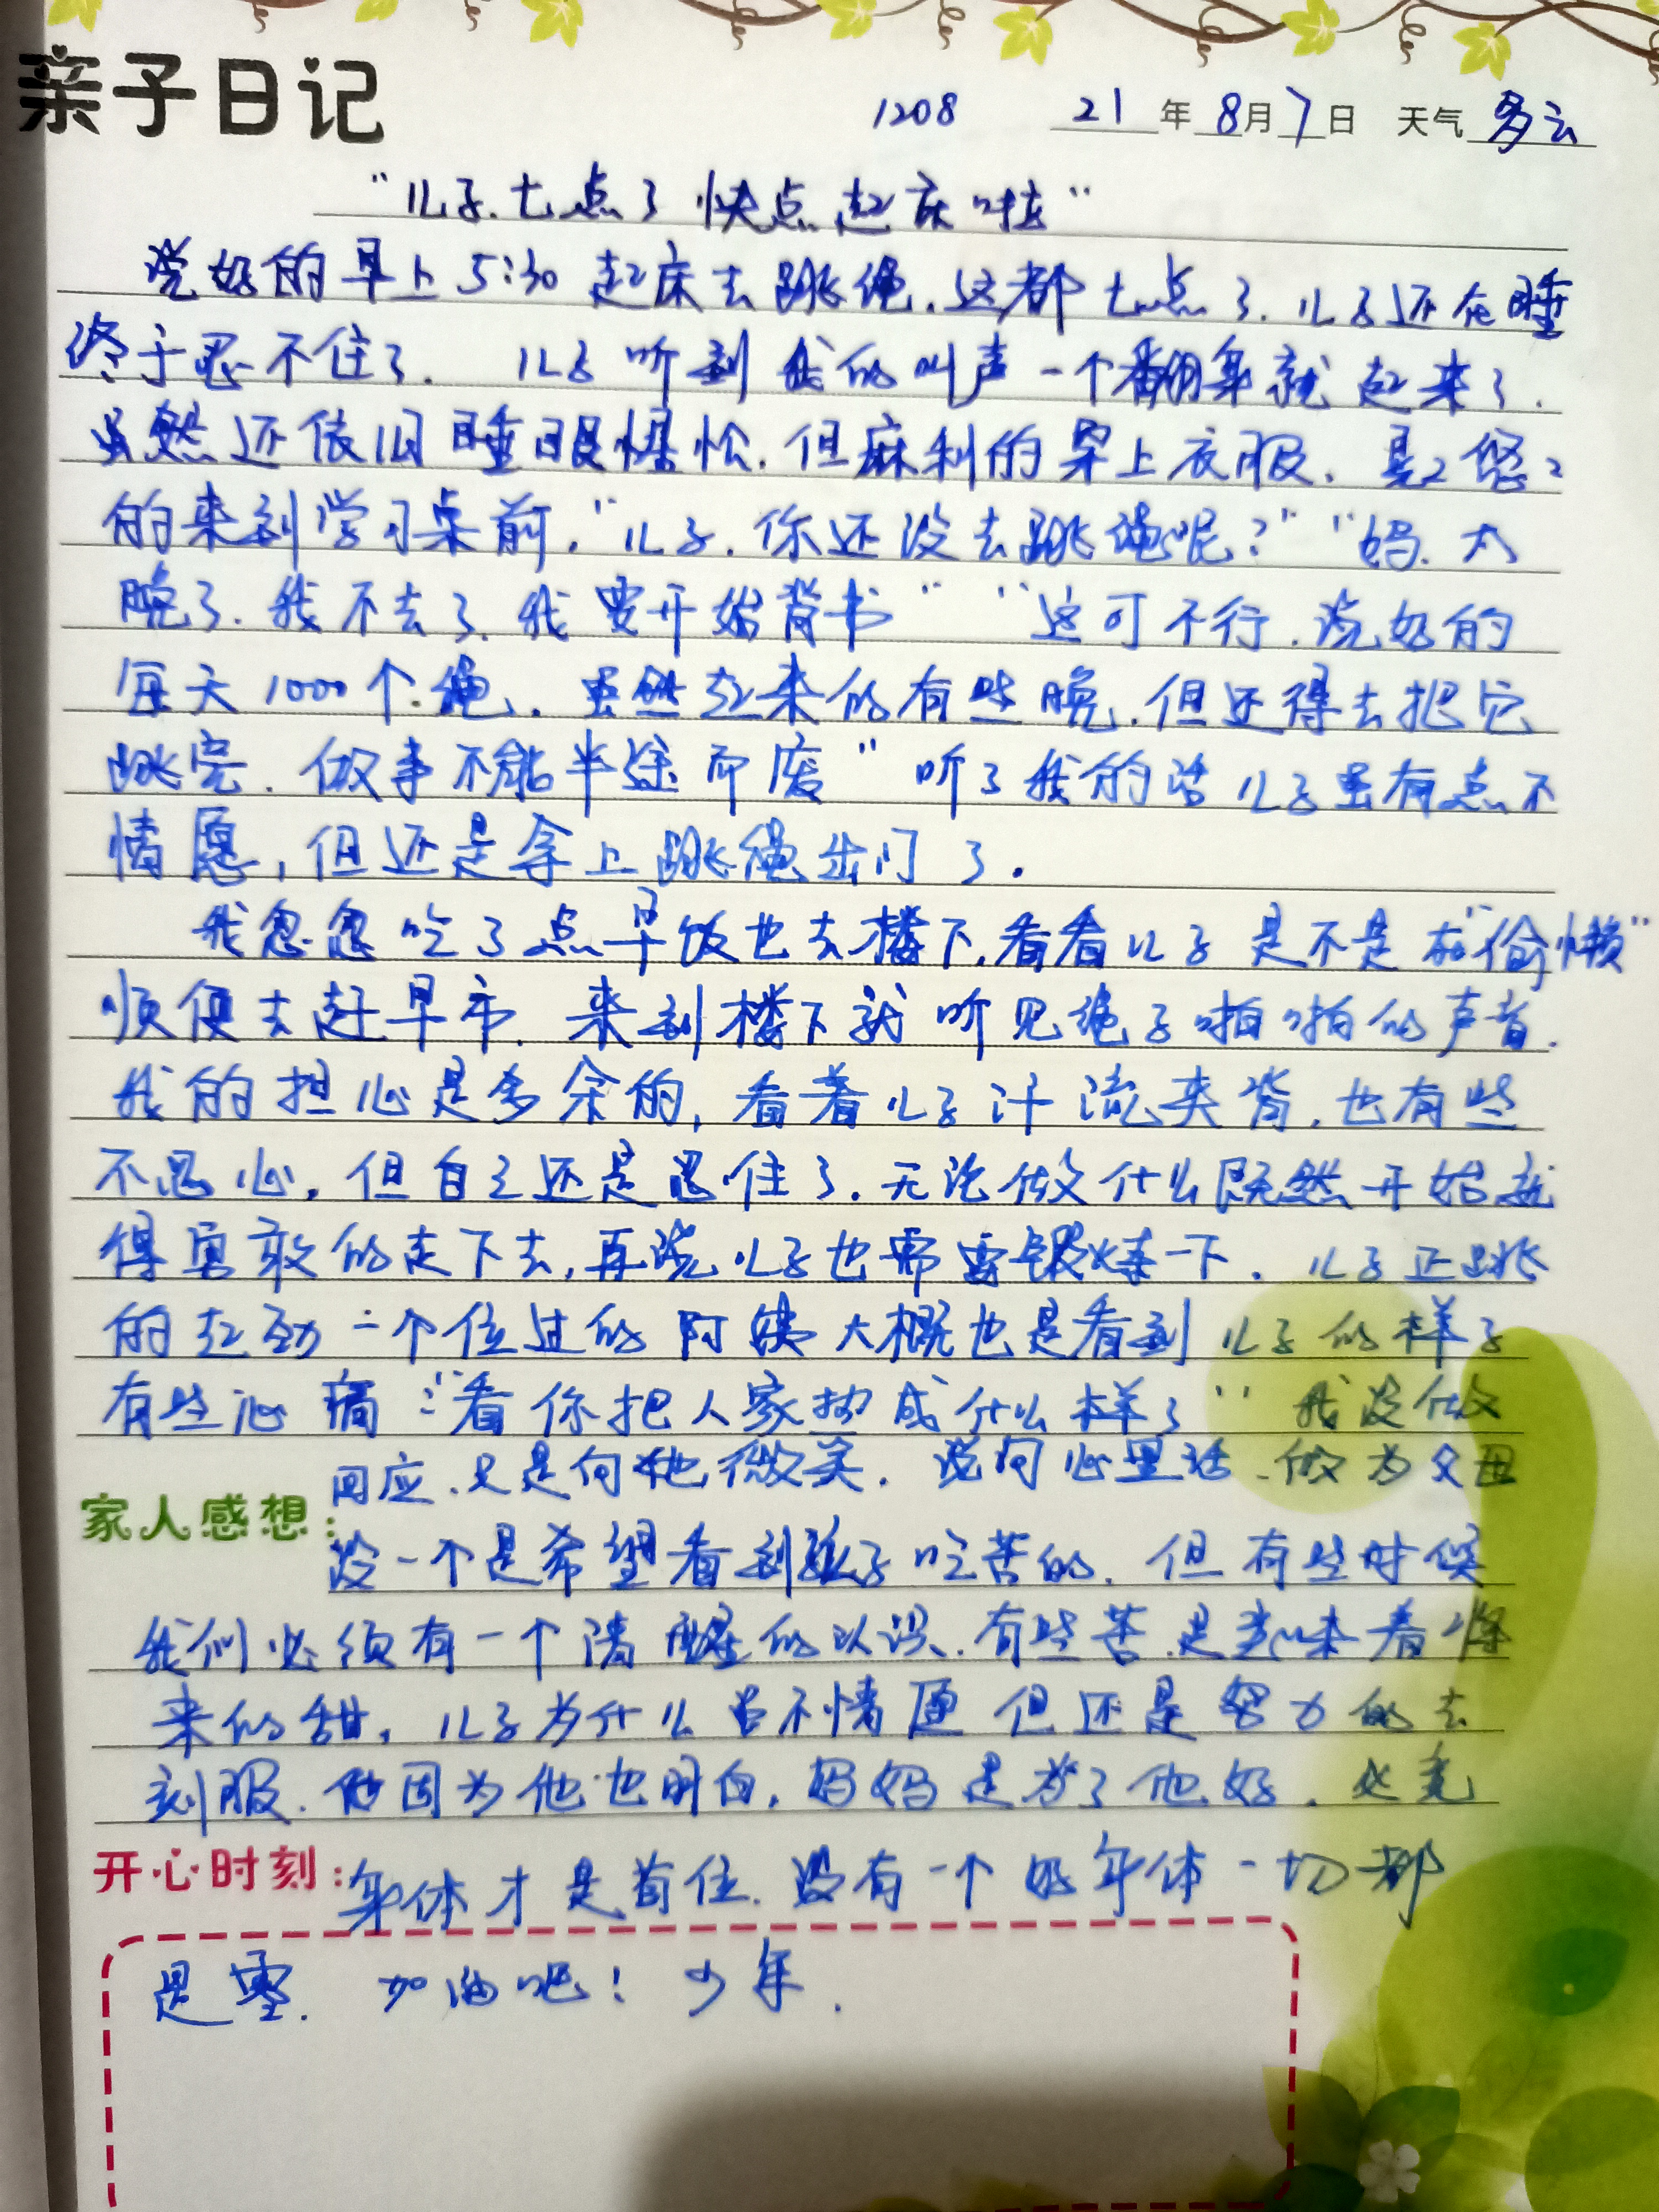 亲子日记
1208 21年8月7日 天气多云
“儿子.七点了快点起床啦”
说好的早上5:30起床去跳绳.这都七点了.儿子还在睡
终于忍不住了. 儿子听到我的叫声一个翻身就起来了.
虽然还依旧睡眼惺忪.但麻利的穿上衣服.晃2悠2
的来到学习桌前.“儿子.你还没去跳绳呢?”“妈.太
晚了.我不去了.我要开始背书”“这可不行.说好的
每天1000个绳.虽然起来的有些晚.但还得去把它
跳完.做事不能半途而废”听了我的话儿子虽有点不
情愿,但还是拿上跳绳出门了.
我忽忽吃了点早饭也去楼下.看看儿子是不是在“偷懒”
顺便去赶早市.来到楼下就听见绳子啪啪的声音.
我的担心是多余的,看着儿子汗流夹背.也有些
不忍心.但自己还是忍住了.无论做什么既然开始就
得勇敢的走下去,再说儿子也需要锻炼一下.儿子正跳
的起劲一个位过的阿姨大概也是看到儿子的样子
有些心痛:“看你把人家热成什么样了”我没做
回应.只是向她微笑.说句心里话.做为父母
家人感想:
没一个是希望看到孩子吃苦的.但有些时候
我们必须有一个清醒的认识.有些苦.是意味着将
来的甜,儿子为什么虽不情愿但还是努力的去
刻服.因为他也明白,妈妈是为了他好.必竟
开心时刻:身体才是首位.没有一个好身体一切都
是零. 加油吧!少年.